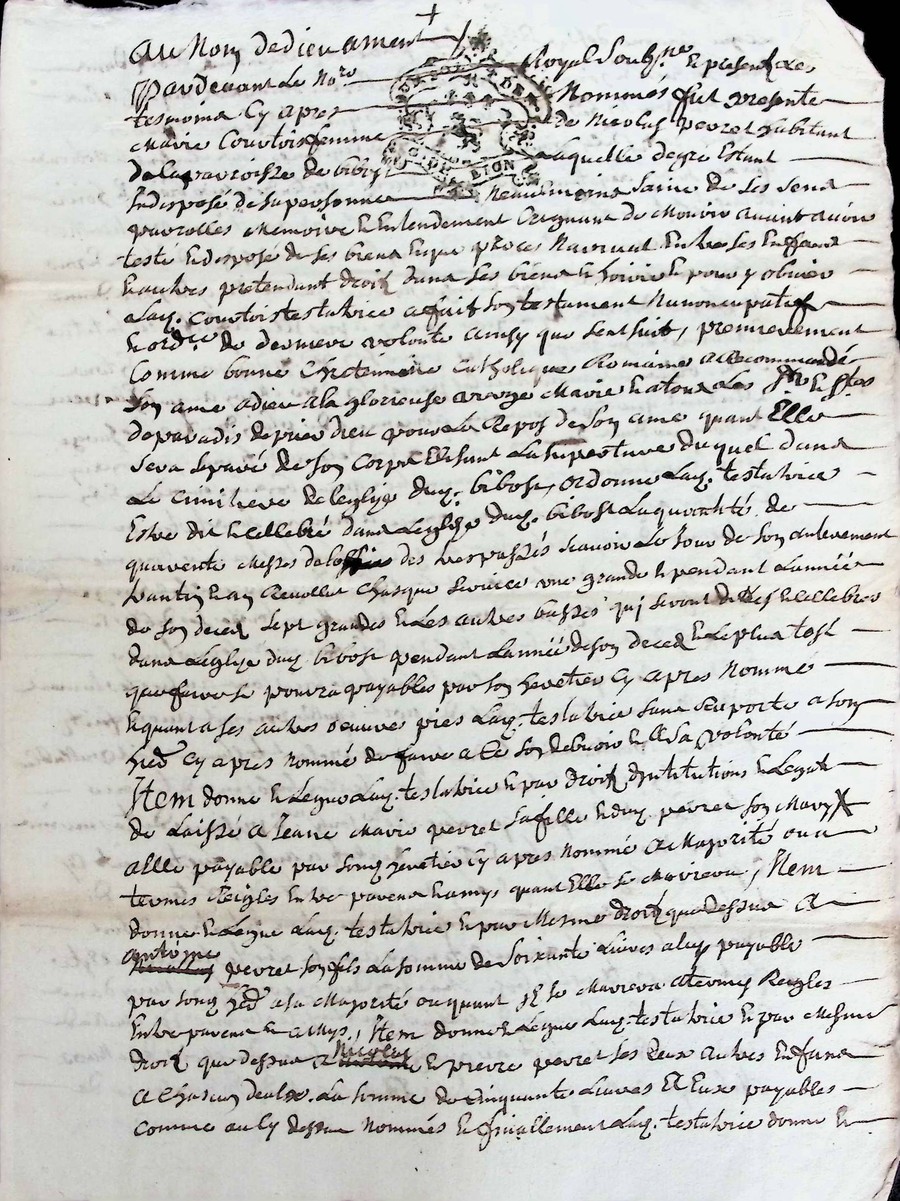 Au Nom de dieu ament
Pardevant Le No.re Royal Soubs.ne & presents Les
tesmoins Cy apres Nommés fut presente
Marie Courtois femme de Nicolas pevret habitant
de la parroisse de bibost Laquelle degre Estant
Indisposé de sa personne Neanmoins saine de ses sens
parrolles Memoire & Entendement Craignant de Mourir avant avoir
testé & disposé de ses biens & que proces Naivruat Entre ses Enffants
& autres pretendant droit dans ses biens & hoirie & pour y obvier
Laq. Courtois testatrice a fait son testament Nunoncupatif
& ord.ce de derniere volonte ainsy que sent suit, premierement
Comme bonne Chrétienne Catholique Romaine a Recommandé
son ame a dieu a la glorieuse vierge Marie & a tous Les S.ts & S.tes
de paradis de prier dieu pour Le Repos de son ame quant Elle
sera separé de son Corps Elisant La supesture duquel dans
Le Cimitiere de leglize dud. bibost, ordonne Laq. testatrice
Estre dit & cellebré dans Leglize dud. bibost La quantité de
quarente Messes de loffice des trespassés scavoir Le Jour de son anterrement
quarantin & an Revollut Chasque service une grande & pendant Lannéé
de son deced sept grandes & Les autres basses qui seront dittes & cellebres
dans Leglize dud. bibost pendant Lannéé de son deced & Le plus tost
que faire se pourra payables par son heretier Cy apres Nommé
& quant a ses autres oeuvres pies Laq. testatrice sans Raporte a son
her. Cy apres Nommé de faire a Ce son debvoir & a sa volonté
Item donne & Legue Laq. testatrice & par droit dinstitutions & Legats
de Laissé a Jeane Marie pevret sa fille & dud. pevret son Mary X
a Elle payable par sond. heretier Cy apres Nommé a Majorité ou a
termes Reigles Entre parens & amys quant Elle se Mariera, Item
donne & Legue Laq. testatrice & par Mesme droit que dessus A
antoine pevret son fils La somme de soixante Livres a luy payable
par sond. her. a sa Majorité ou quant Il se Mariera a termes Reigles
Entre parens & amys, Item donne & Legue Laq. testatrice & par Mesme
droit que dessus a Nicolas & pierre pevret ses deux autres Enfans
a Chascun deulx La somme de Cinquante Livres A Eux payables
Comme au Cy dessus Nommés & finallement Laq. testatrice donne &